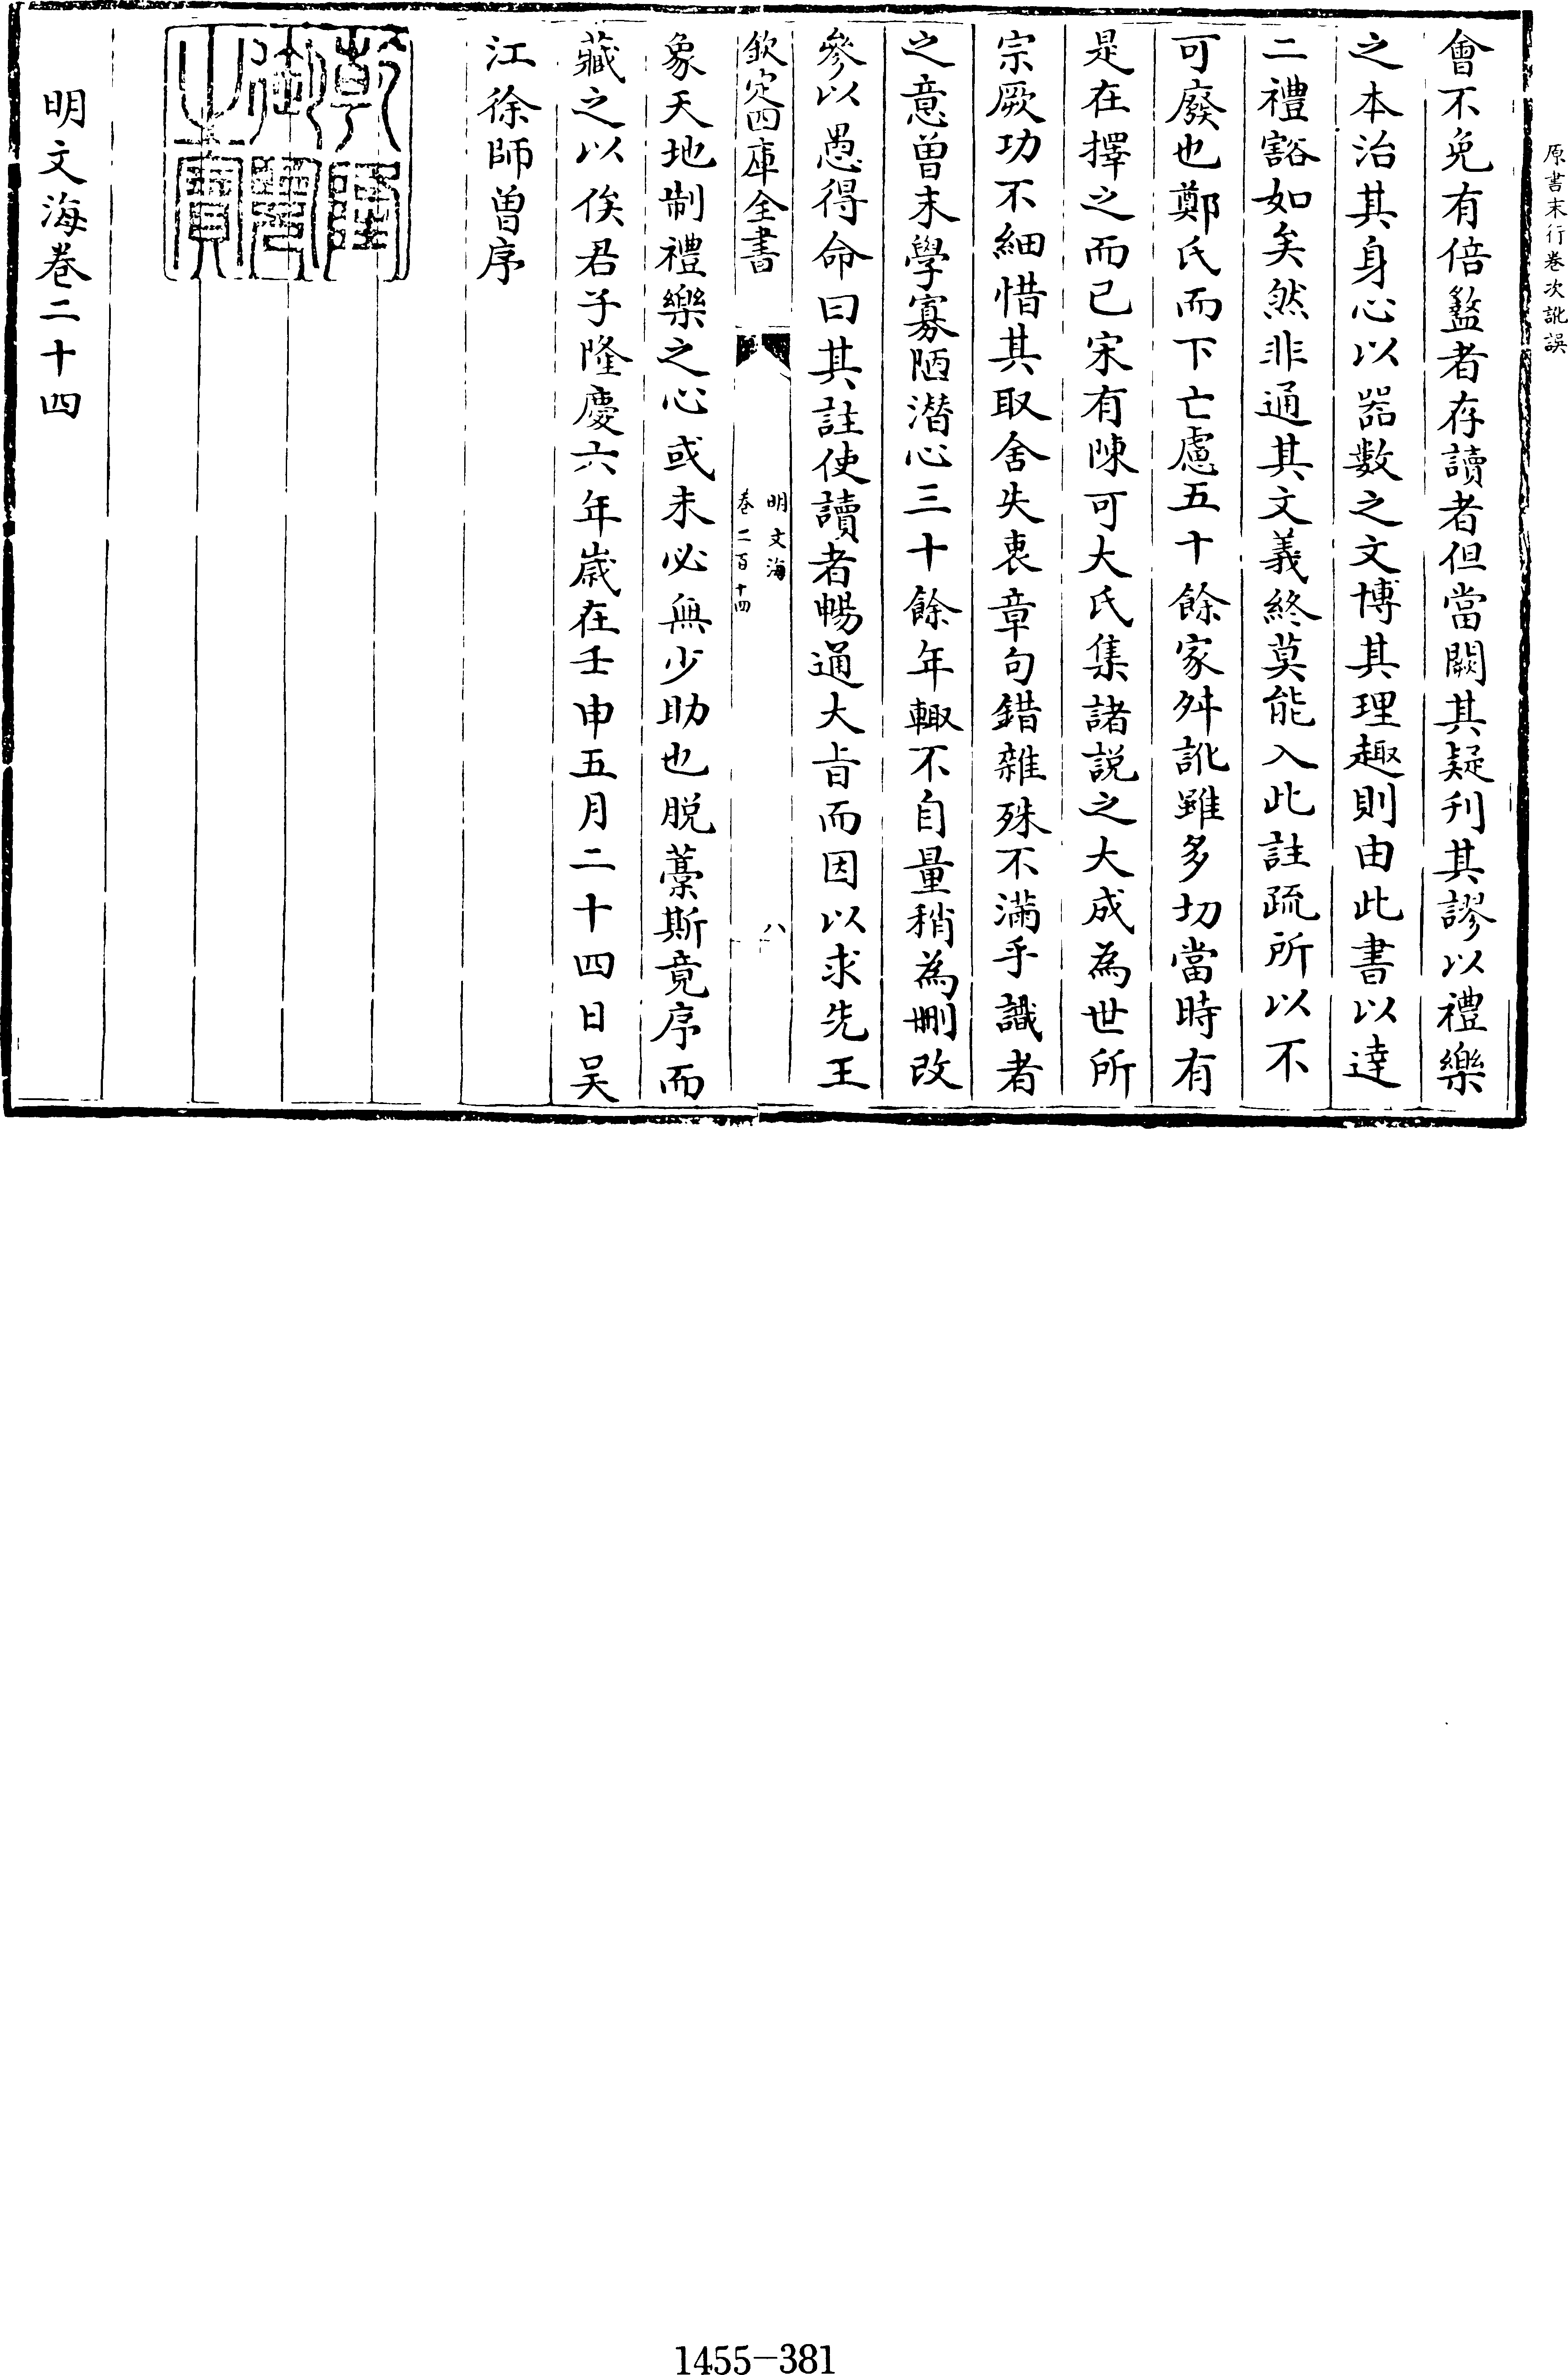 原書末行卷次訛誤
會不免有倍盭者存讀者但當闕其疑刋其謬以禮樂
之本治其身心以器數之文博其理趣則由此書以達
二禮豁如矣然非通其文義終莫能入此註疏所以不
可廢也鄭氏而下亡慮五十餘家舛訛雖多切當時有
是在擇之而已宋有陳可大氏集諸説之大成為世所
宗厥功不細惜其取舍失衷章句錯雜殊不滿乎識者
之意曽末學寡陋潛心三十餘年輙不自量稍為刪改
參以愚得命曰其註使讀者暢通大㫖而因以求先王
欽定四庫全書
明文海
卷二百十四
八
象天地制禮樂之心或未必無少助也脱藁斯竟序而
藏之以俟君子隆慶六年嵗在壬申五月二十四日吴
江徐師曽序
乾隆
御覽
之寶
明文海卷二十四
1455-381